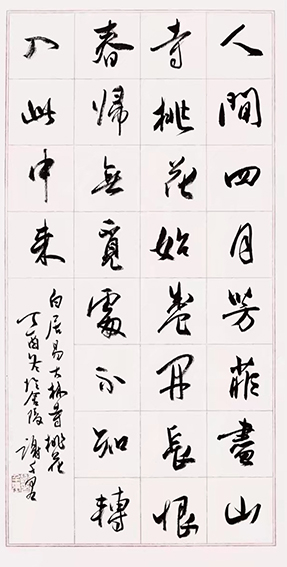 人間四月芳菲盡山
寺桃花始盛開長恨
春歸無覓處不知轉
入此中来
白居易大林寺桃花
丁酉冬於金陵謝